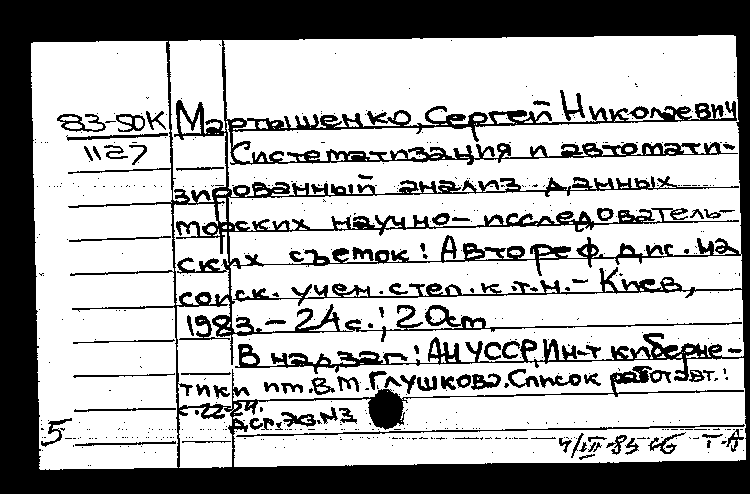 83-50К Мартышенко, Сергей Николаевич
1127 Систематизация и автомати-
зированный анализ данных
морских научно-исследователь-
ских съемок: Автореф. дис. на
соиск. учен. степ. к.т.н. - Киев,
1983. - 24 с.; 20 см.
В надзаг.: АН УССР, Ин-т киберне-
тики им. В.М. Глушкова. Список работ авт.:
с. 22-24.
Д.сп. экз. №3
5
4/III-83 Т-А